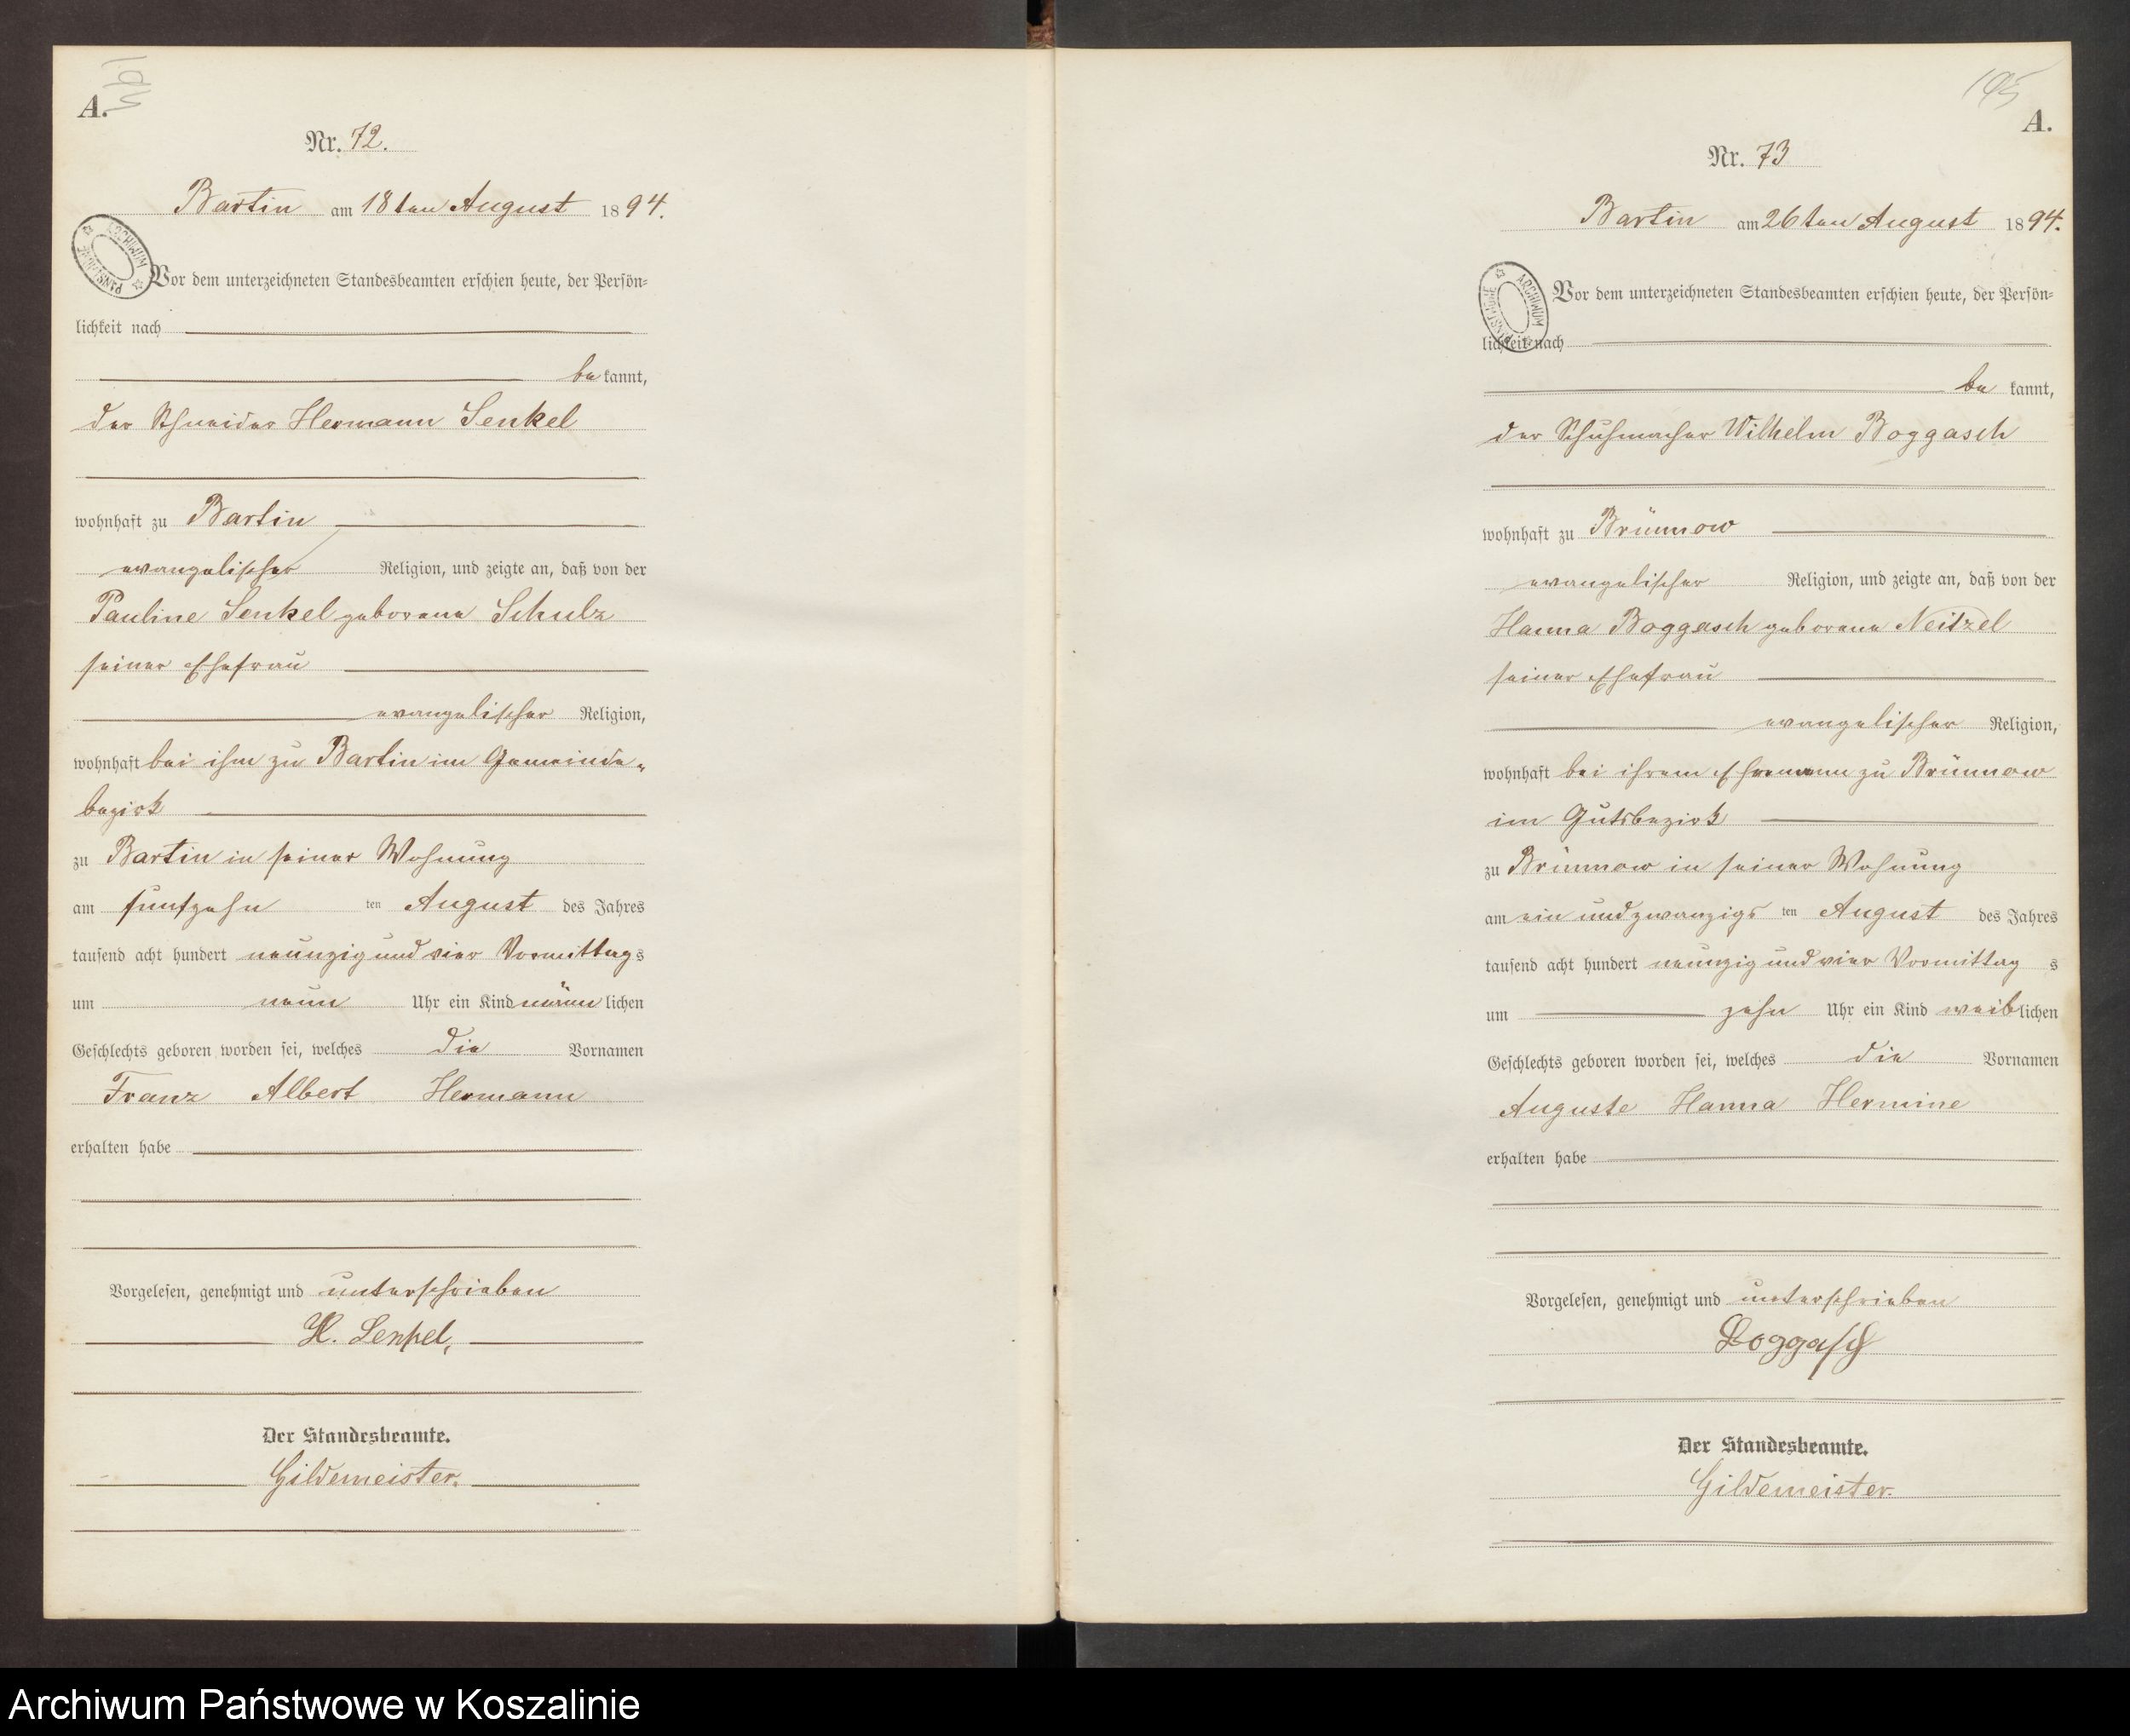 194
A.
Nr. 72.
Bartin am 18ten August 1894.
ARCHIWUM PAŃSTWOWE
Vor dem unterzeichneten Standesbeamten erschien heute, der Persön-
lichkeit nach
bekannt,
der Schneider Hermann Senkel
wohnhaft zu Bartin
evangelischer Religion, und zeigte an, daß von der
Pauline Senkel geborene Schulz
seiner Ehefrau
evangelischer Religion,
wohnhaft bei ihm zu Bartin im Gemeinde-
bezirk
zu Bartin in seiner Wohnung
am fünfzehn ten August des Jahres
tausend acht hundert neunzig und vier Vormittags
um neun Uhr ein Kind männlichen
Geschlechts geboren worden sei, welches die Vornamen
Franz Albert Hermann
erhalten habe
Vorgelesen, genehmigt und unterschrieben
H. Senkel,
Der Standesbeamte.
Gildemeister.
195
A.
Nr. 73
Bartin am 26ten August 1894.
ARCHIWUM PAŃSTWOWE
Vor dem unterzeichneten Standesbeamten erschien heute, der Persön-
lichkeit nach
bekannt,
der Schuhmacher Wilhelm Boggasch
wohnhaft zu Brünnow
evangelischer Religion, und zeigte an, daß von der
Hanna Boggasch geborene Neitzel
seiner Ehefrau
evangelischer Religion,
wohnhaft bei ihrem Ehemann zu Brünnow
im Gutsbezirk
zu Brünnow in seiner Wohnung
am ein und zwanzigs ten August des Jahres
tausend acht hundert neunzig und vier Vormittag s
um zehn Uhr ein Kind weiblichen
Geschlechts geboren worden sei, welches die Vornamen
Auguste Hanna Hermine
erhalten habe
Vorgelesen, genehmigt und unterschrieben
Boggasch
Der Standesbeamte.
Gildemeister.
Archiwum Państwowe w Koszalinie